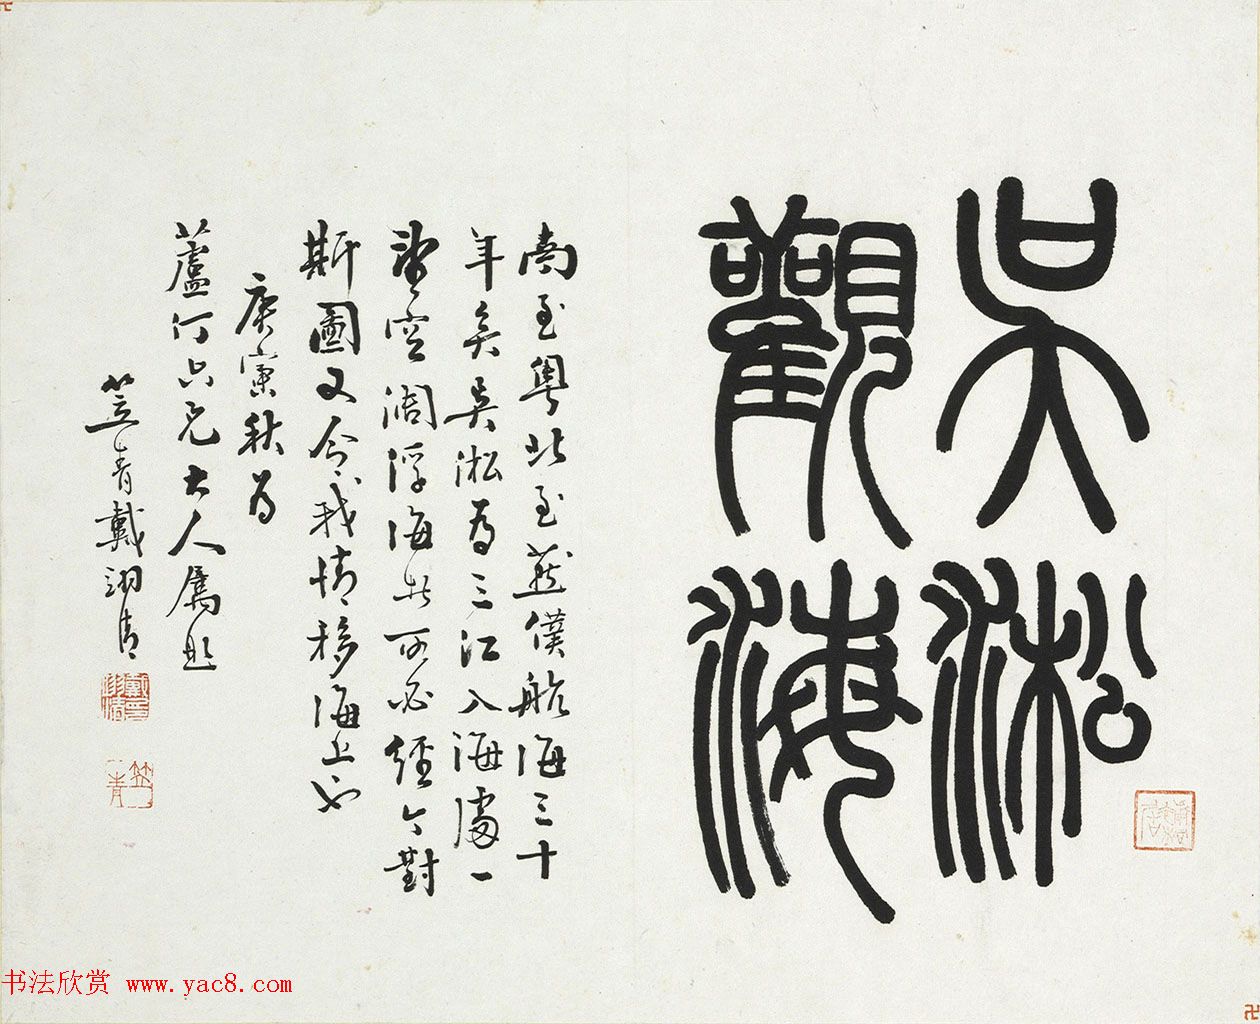 吳淞
觀海
南至粵北至燕僕航海三十
年矣吳淞為三江入海處一
望空濶浮海者所必經今對
斯圖又令我情移海上也
庚寅秋為
蘆汀六兄大人屬題
笠青戴翊清
笠青
书法欣赏 www.yac8.com